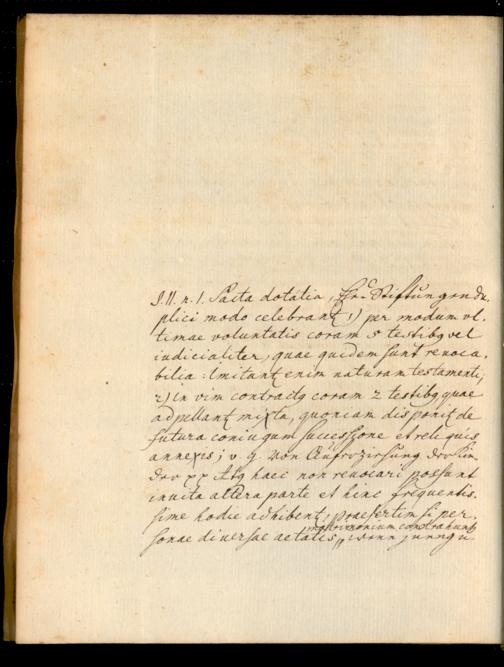 §. II. n. 1. Pacta dotatia, Ehe Stiftungen du
plici modo celebrant 1) per modum vl
timae voluntatis coram 5 testibq vel
iudicialiter, quae quidem sunt revoca.
bilia : Imitant enim naturam testamenti,
2) in vim contractq coram 2 testibq quae
adpellant mixta, quoniam disponit de
futura coniugum successione et reliquis
annexis; v. g. von Auferziehung der Kin
der pp Atq haec non revocari possunt
invita altera parte et hinc frequentis.
sime hodie adhibent, praesertim si per.
matrimonium contrahunt
sonae diversae aetatis, wenn junge u.